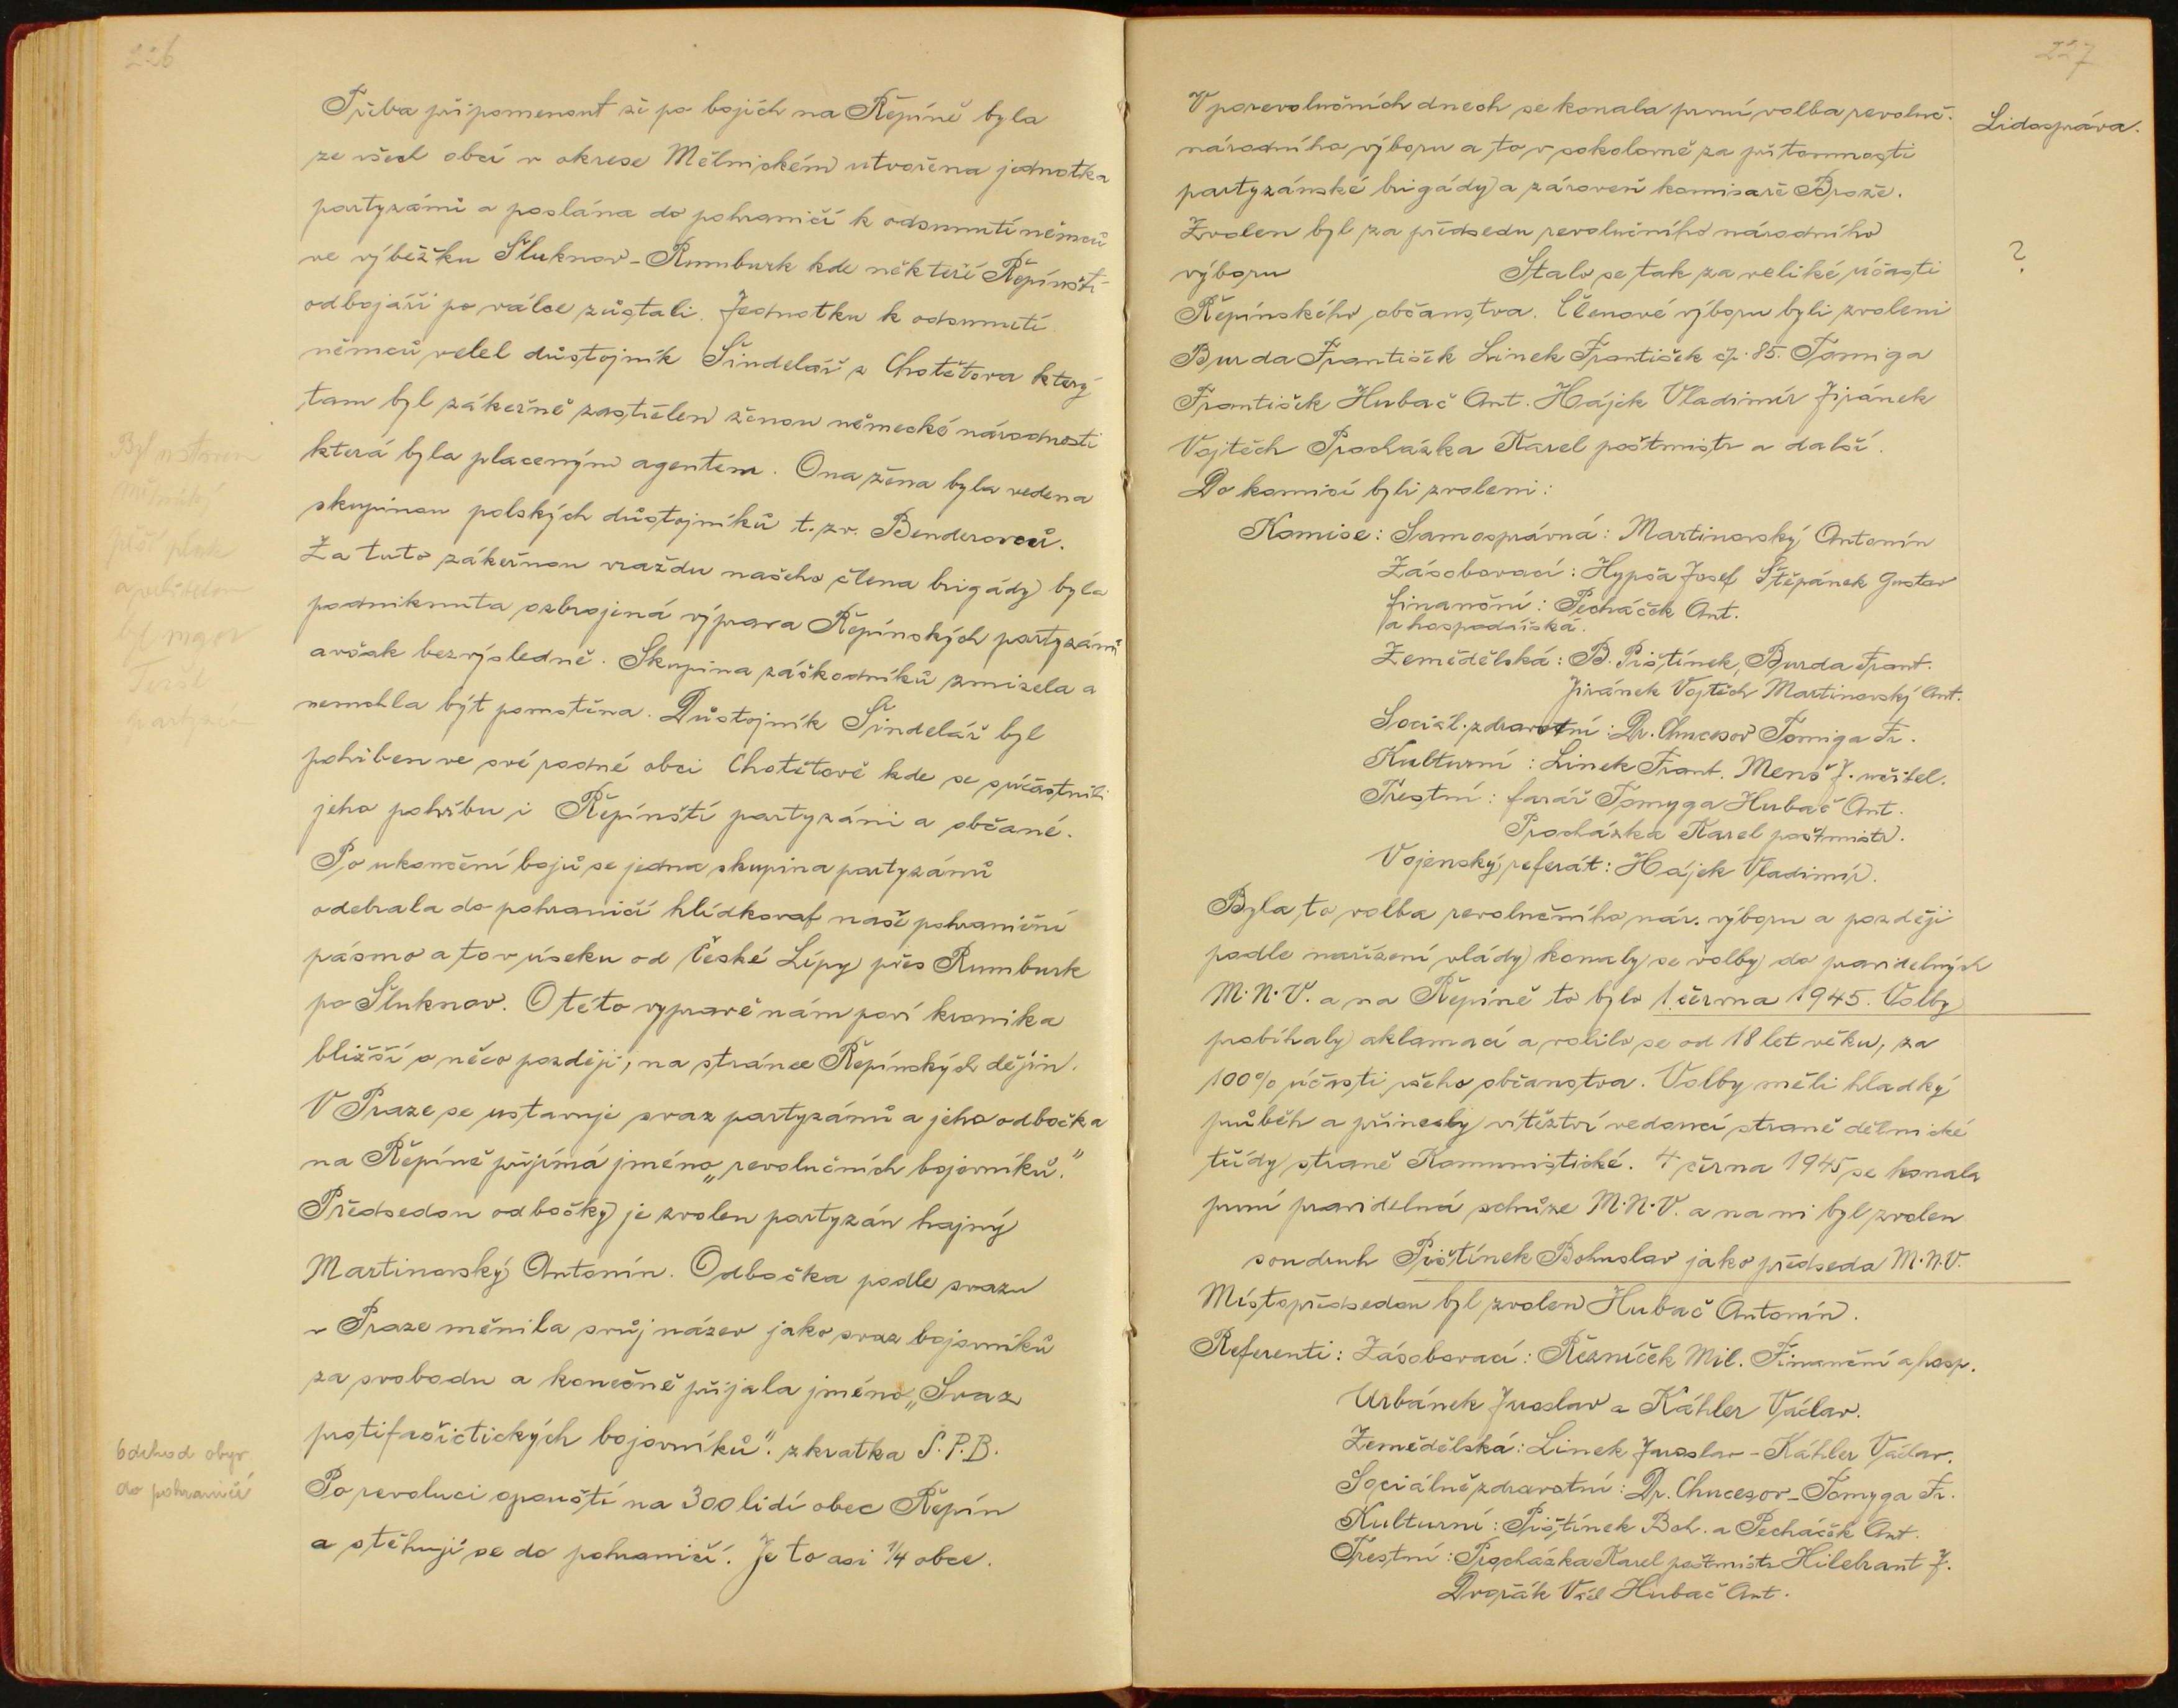 226
Třeba připomenout že po bojích na Řepíně byla
ze všech obcí v okrese Mělnickém utvořena jednotka
partyzánů a poslána do pohraničí k odsunutí němců
ve výběžku Šluknov-Rumburk kde někteří Řepínští
odbojáři po válce zůstali. Jednotku k odsunutí
němců velel důstojník Šindelář z Chotětova který
tam byl zákeřně zastřelen ženou německé národnosti
která byla placeným agentem. Ona žena byla vedena
skupinou polských důstojníků t.zv. Benderovců.
Za tuto zákeřnou vraždu našeho člena brigády byla
podniknuta ozbrojená výprava Řepínských partyzánů
avšak bezvýsledně. Skupina záškodníků zmizela a
nemohla být pomstěna. Důstojník Šindelář byl
pohřben ve své rodné obci Chotětově kde se súčastnili
jeho pohřbu i Řepínští partyzáni a občané.
Po ukončení bojů se jedna skupina partyzánů
odebrala do pohraničí hlídkovat naše pohraniční
pásmo a to v úseku od České Lípy přes Rumburk
po Šluknov. O této vypravě nám poví kronika
bližší o něco později, na stránce Řepínských dějin.
V Praze se ustavuje svaz partyzánů a jeho odbočka
na Řepíně přijímá jméno „revolučních bojovníků."
Předsedou odbočky je zvolen partyzán hajný
Martinovský Antonín. Odbočka podle svazu
v Praze měnila svůj název jako svaz bojovníků
za svobodu a konečně přijala jméno „Svaz
protifašistických bojovníků". zkratka S.P.B.
Po revoluci opouští na 300 lidí obec Řepín
a stěhují se do pohraničí. Je to asi 1/4 obce.
Byl
a
byl
odchod obyv.
do pohraničí
227
V porevolučních dnech se konala první volba revoluč.
národního výboru a to v sokolovně za přítomnosti
partyzánské brigády a zároveň komisaře Brože.
Zvolen byl za předsedu revolučního národního
výboru Stalo se tak za veliké účasti
Řepínského občanstva. Členové výboru byli zvoleni
Burda František Linek František čp. 85. Tomiga
František Hubač Ant. Hájek Vladimír Jiránek
Vojtěch Procházka Karel poštmistr a další.
Do komisí byli zvoleni:
Komise: Samosprávná: Martinovský Antonín
Zásobovací: Hypša Josef Štěpánek Gustav
finanční: Pecháček Ant.
a hospodářská.
Zemědělská: B. Pištínek, Burda Frant.
Jiránek Vojtěch Martinovský Ant.
Sociál. zdravotní: Dr. Chucesov Tomiga Fr.
Kulturní: Linek Frant. Menš J. učitel.
Trestní: farář Tomyga Hubač Ant.
Procházka Karel poštmistr.
Vojenský referát: Hájek Vladimír.
Byla to volba revolučního nár. výboru a později
podle nařízení vlády konaly se volby do pravidelných
M.N.V. a na Řepíně to bylo 1. června 1945. Volby
probíhaly aklamací a volilo se od 18 let věku, za
100% účasti všeho občanstva. Volby měli hladký
průběh a přinesly vítěztví vedoucí straně dělnické
třídy straně Komunistické. 4 června 1945 se konala
první pravidelná schůze M.N.V. a na ni byl zvolen
soudruh Pištínek Bohuslav jako předseda M.N.V.
Místopředsedou byl zvolen Hubač Antonín.
Referenti: Zásobovací: Řezníček Mil. Finanční a hosp.
Urbánek Jaroslav a Káhler Václav.
Zemědělská: Linek Jaroslav - Káhler Václav.
Sociálně zdravotní: Dr. Chucesov - Tomyga Fr.
Kulturní: Pištínek Boh. a Pecháček Ant.
Trestní: Procházka Karel poštmistr Hilebrant J.
Dvořák Václ Hubač Ant.
Lidospráva.
?